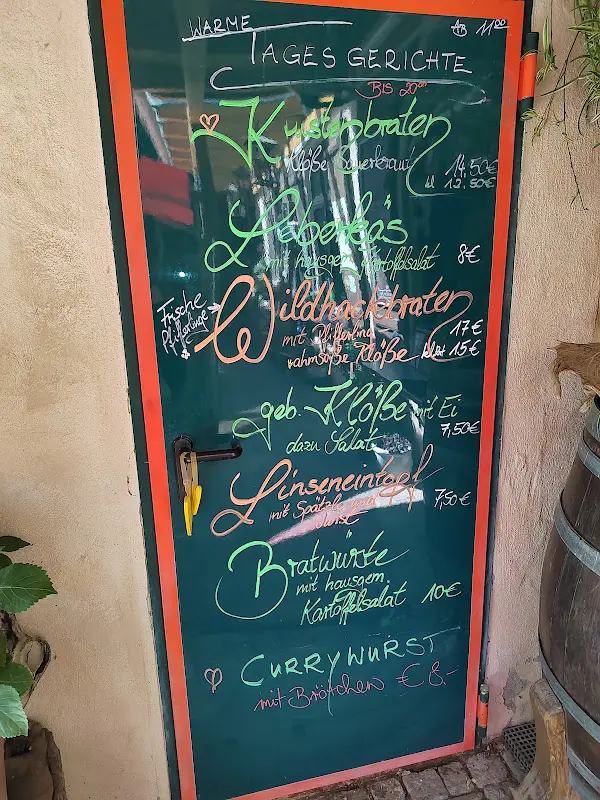 WARME
AB 11⁰⁰
TAGESGERICHTE
BIS 20⁰⁰
Krustenbraten
Klöße Sauerkraut
14,50€
kl 12,50€
Leberkäs
mit hausgem. Kartoffelsalat 8€
Frische
Pfifferlinge
Wildhackbraten
mit Pfifferling
rahmsoße Klöße
17€
klein 15€
geb. Klöße mit Ei
dazu Salat
7,50€
Linseneintopf
mit Spätzle und
Wurst
7,50€
Bratwürste
mit hausgem.
Kartoffelsalat 10€
CURRYWURST
mit Brötchen € 8.-